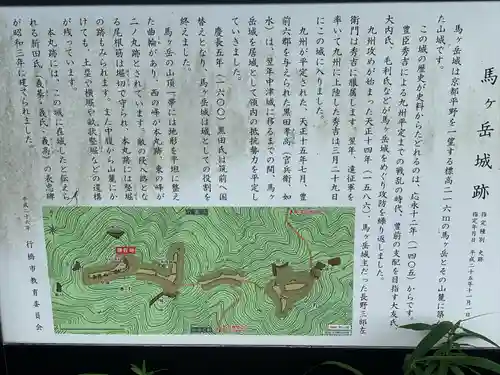 馬ヶ岳城跡
指定種別 史跡
指定年月日 平成二十五年十一月一日
馬ヶ岳城は京都平野を一望する標高二一六mの馬ヶ岳とその山麓に築かれ
た山城です。
この城の歴史が史料からたどれるのは、応永十二年（一四〇五）からです。
豊臣秀吉による九州平定までの戦乱の時代、豊前の支配を目指す大友氏、
大内氏、毛利氏などが馬ヶ岳城をめぐり攻防を繰り返しました。
九州攻めが始まった天正十四年（一五八六）、馬ヶ岳城主だった長野三郎左
衛門は秀吉に服属します。翌年、遠征軍を
率いて九州に上陸した秀吉は三月二十九日
にこの城に入りました。
九州が平定された、天正十五年七月、豊
前六郡を与えられた黒田孝高（官兵衛、如
水）は、翌年中津城に移るまでの間、馬ヶ
岳城を居城として領内の抵抗勢力を平定し
ていきました。
慶長五年（一六〇〇）黒田氏は筑前へ国
替えとなり、馬ヶ岳城は城としての役割を
終えました。
馬ヶ岳の山頂一帯には地形を平坦に整え
た曲輪があり、西の峰が本丸跡、東の峰が
二ノ丸跡とされています。敵の侵入路とな
る尾根筋は堀切で守られ、本丸跡には竪堀
の跡もみられます。また中腹から山麓にか
けても、土塁や横堀や畝状竪堀などの遺構
が残っています。
本丸跡には、この城に在城したと伝えら
れる新田氏（義基・義氏・義高）の表忠碑
が昭和三年に建てられました。
平成二十六年
行橋市教育委員会